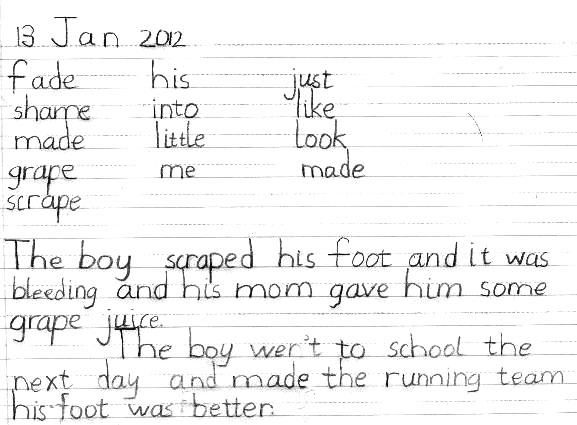 13 Jan 2012
fade his just
shame into like
made little look
grape me made
scrape
The boy scraped his foot and it was
bleeding and his mom gave him some
grape juice.
The boy wen't to school the
next day and made the running team
his foot was better.